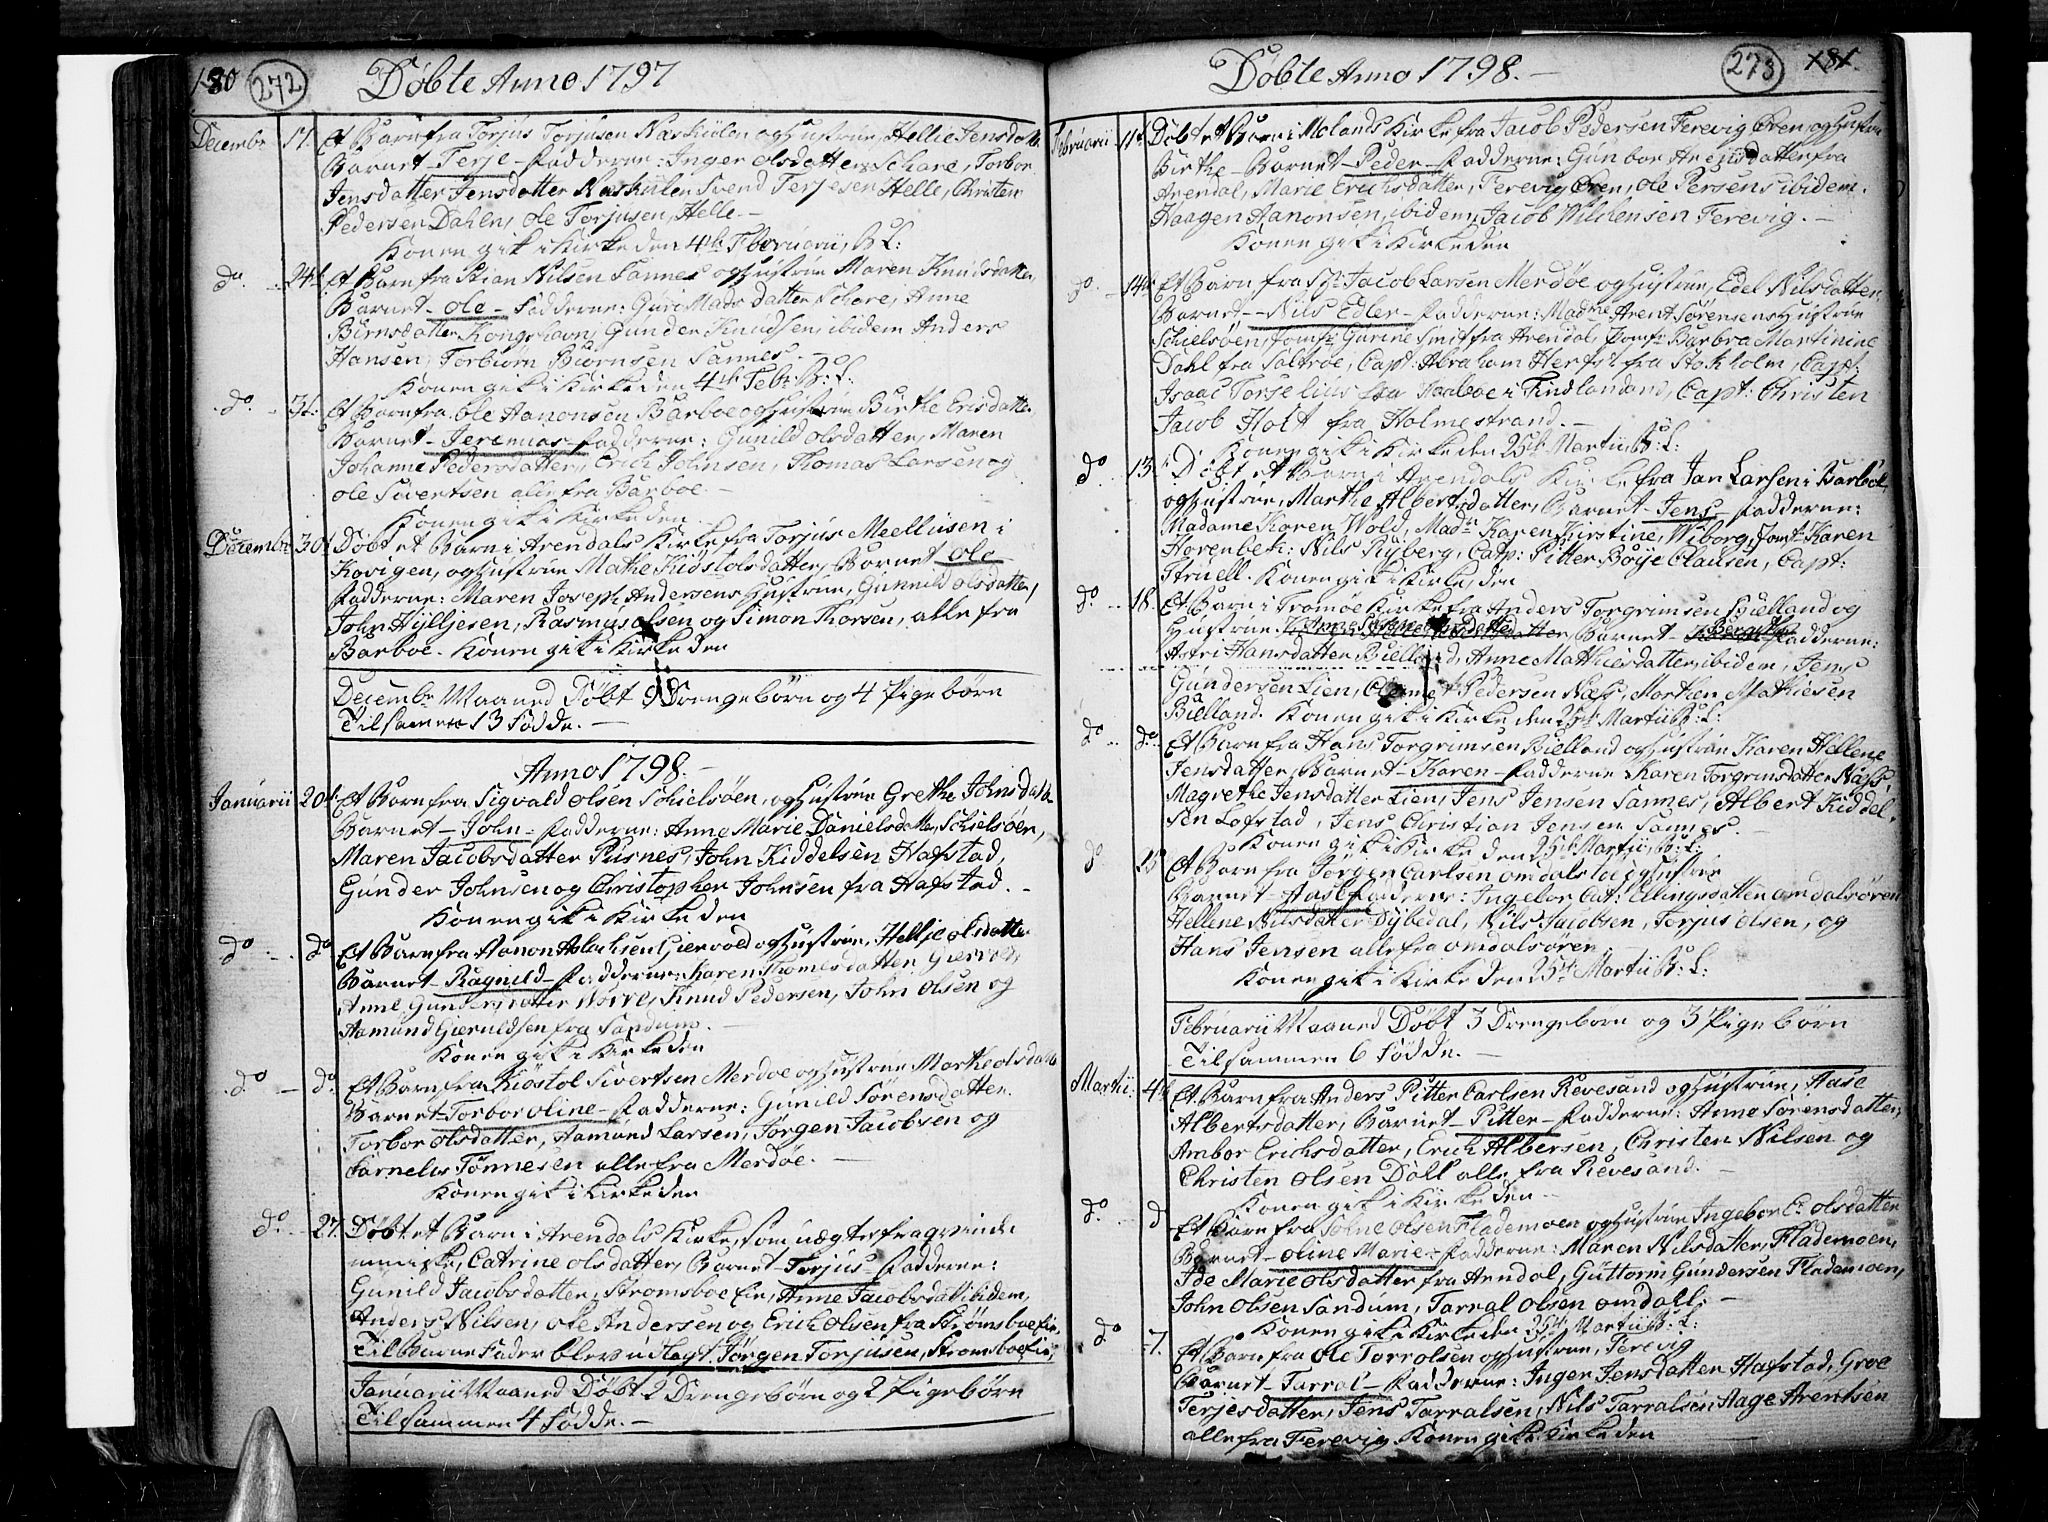 180 272 Døbte Anno 1797
Decembr 17. Et Barn fra Torjus Torjusen Naskülen og Hustrüe, Hellie Jensdatter
Barnet - Terje - Fadderne: Inger Olsdatter Schare, Torbor
Jensdatter Jensdatter Naskülen Svend Terjesen Helle, Christen
Pedersen Dahlen, Ole Torjusen, Helle. -
Konen gik i Kirke den 4de Februarii, B: L:
do 24de Et Barn fra Stian Nilsen Sannes og Hustrüe Maren Knudsdatter,
Barnet - Ole - Fadderne: Guri Mads datter Schare, Anne
Birnsdatter Kongshavn, Gunder Knudsen, ibidem Anders
Hansen, Torbiørn Biørnsen Sannes. -
Konen gik i Kirke den 4de Febr: B: L:
do 31. Et Barn fra Ole Aanonsen Barboe og Hustrüe Birthe Erisdatter
Barnet - Jeremias - Fadderne: Gunild Olsdatter, Maren
Johanne Pedersdatter, Erich Johnsen, Thomas Larsen og
Ole Sivertsen alle fra Barboe. -
Konen gik i Kirke den
Decembr 30. Døbt et Barn i Arendals Kirke fra Torjus Meellüsen i
Kovigen, og Hustrüe Mathe Kidstolsdatter, Barnet Ole
Fadderne: Maren Joseph Andersens Hustrüe, Gunnild Olsdatter,
John Hylljesen, Rasmus Olsen og Simon Thorsen, alle fra
Barboe. Konen gik i Kirke den
Decembr Maaned Døbt 9 Drengebørn og 4 Pigebørn
Tilsammen 13 Fødde. -
Anno 1798. -
Januarii 20de Et Barn fra Sigvald Olsen Schielsøen, og Hustrüe Grethe Johnsdatter
Barnet - John - Fadderne: Anne Marie Danielsdatter, Schielsøen,
Maren Jacobsdatter Pusnes, John Kiddelsen Hafstad,
Gunder Johnsen og Christopher Johnsen fra Hafstad. -
Konen gik i Kirke den
do do Et Barn fra Aanon Aslachsen Giervold og Hustrüe, Hellje Olsdatter
Barnet - Ragnild - Fadderne: Karen Thomesdatter Giervold,
Anne Gundersdatter Norre, Knud Pedersen, John Olsen og
Aamund Gieruldsen fra Sandum. -
Konen gik i Kirke den
do do Et Barn fra Kiøstol Sivertsen Merdøe og Hüstrüe Marthe Olsdatter
Barnet - Torbor Oline - Fadderne: Gunild Sørensdatter
Torbor Olsdatter, Aamund Larsen, Jørgen Jacobsen og
Cornelus Tønnesen alle fra Merdøe. -
Konen gik i Kirke den
do 27. Døbt et Barn i Arendals Kirke, som uægte fra qvinde
menniske, Catrine Olsdatter, Barnet - Torjus - Fadderne:
Gunild Jacobsdatter, Strømsboe Eie, Anne Jacobsdatt ibidem,
Anders Nilsen, Ole Andersen og Erich Olsen fra Strømsboe Eie,
Til Barne Fader blev udlagt Jørgen Torjusen, Strømsboe Eie,
Januarii Maaned Døbt 2 Drengebørn og 2 Pigebørn
Tilsammen 4 Fødde. -
Døbte Anno 1798. - 273 181
Februarii 11te Døbt et Barn i Molands Kirke fra Jacob Pedersen Ferevig Øren, og Hustrue
Birthe - Barnet - Peder - Fadderne: Gunbor Arensdatter fra
Arendal, Marie Erichsdatter, Ferevig Øren, Ole Persens ibidem.
Haagen Aanonsen, ibidem, Jacob Wilchensen Ferevig. -
Konen gik i Kirke den
do 14de Et Barn fra Jacob Larsen Merdøe og Hustrüe, Edel Nilsdatter,
Barnet - Nils Edler - Fadderne: Madme Arent Sørensens Hustrüe
Schielsøen, Jomfr: Gurine Smit fra Arendal, Jomfr: Barbra Martinine
Dahl fra Saltrøe, Capt: Abraham Herfst fra Stokholm, Capt:
Isaac Torselius fra Aaboe i Findlandand, Capt: Christen
Jacob Holt fra Holmestrand. -
Konen gik i Kirke den 25de Martii B: L:
do 13 Døbt et Barn i Arendals Kirke fra Jan Larsen i Barboe,
og Hustrüe, Marthe Alberts datter, Barnet - Jens - Fadderne:
Madame Karen Wold, Madme Karen Kirstine, Wiborg, Jomfr Karen
Horenbek: Nils Ryberg, Catp: Pitter Böye Clausen, Capt:
Struell. Konen gik i Kirke, den
do 18. Et Barn i Tromøe Kirke fra Anders Torgrimsen Bielland og
Hustrüe, datter, Barnet - Fadderne:
Astri Hansdatter, Bielland, Anne Mathiesdatter, ibidem, Jens
Gundersen Lien, Clemet Pedersen Næss, Morthen Mathiesen
Bielland. Konen gik i Kirke den 25de Martii B: L:
do do Et Barn fra Hans Torgrimsen Bielland og Hüstrüe Karen Hellene
Jensdatter, Barnet - Karen - Fadderne: Karen Torgrimsdatter Næss,
Magrethe Jensdatter Lien, Jens Jensen Sannes, Albert Kiddel-
sen Lofstad, Jens Christian Jensen Sannes. -
Konen gik i Kirke den 25de Martii, B: L:
do 25 Et Barn fra Jørgen Carlsen Omdalstø og Hustrüe
Barnet - Aase Fadderne: Ingebor Cat: Ellingsdatter Omdalsøren,
Hellene Nilsdatter Dybedal, Nils Jacobsen, Torjus Olsen, og
Hans Jensen alle fra Omdalsøren. -
Konen gik i Kirke den 25de Martii B: L:
Februarii Maaned Døbt 3 Drengebørn og 3 Pigebørn
Tilsammen 6 Fødde. -
Martii: 4de Et Barn fra Anders Pitter Carlsen Revesand og Hustrüe, Aase
Albertsdatter, Barnet - Pitter - Fadderne: Anne Sørensdatter,
Ambor Erichsdatter, Erich Albersen, Christen Nilsen og
Christen Olsen Doll alle fra Revesand. -
Konen gik i Kirke den -
do. d Et Barn fra Johne Olsen Flademoen og Hustrüe Ingebor C: Olsdatter
Barnet - Oline Marie - Fadderne: Maren Nilsdatter, Flademoen,
Ide Marie Olsdatter fra Arndal, Guttorm Gundersen Flademoen,
John Olsen Sandum, Tarral Olsen Omdall: -
Konen gik i Kirke den 25de Martii B: L:
do 7. Et Barn fra Ole Torrolsen og Hustrüe, Ferevig
Barnet - Tarral - Fadderne: Inger Jensdatter Hafstad, Groe
Terjesdatter, Jens Tarralsen, Nils Tarralsen Aage Arentsen
alle fra Ferevig Konen gik i Kirke den